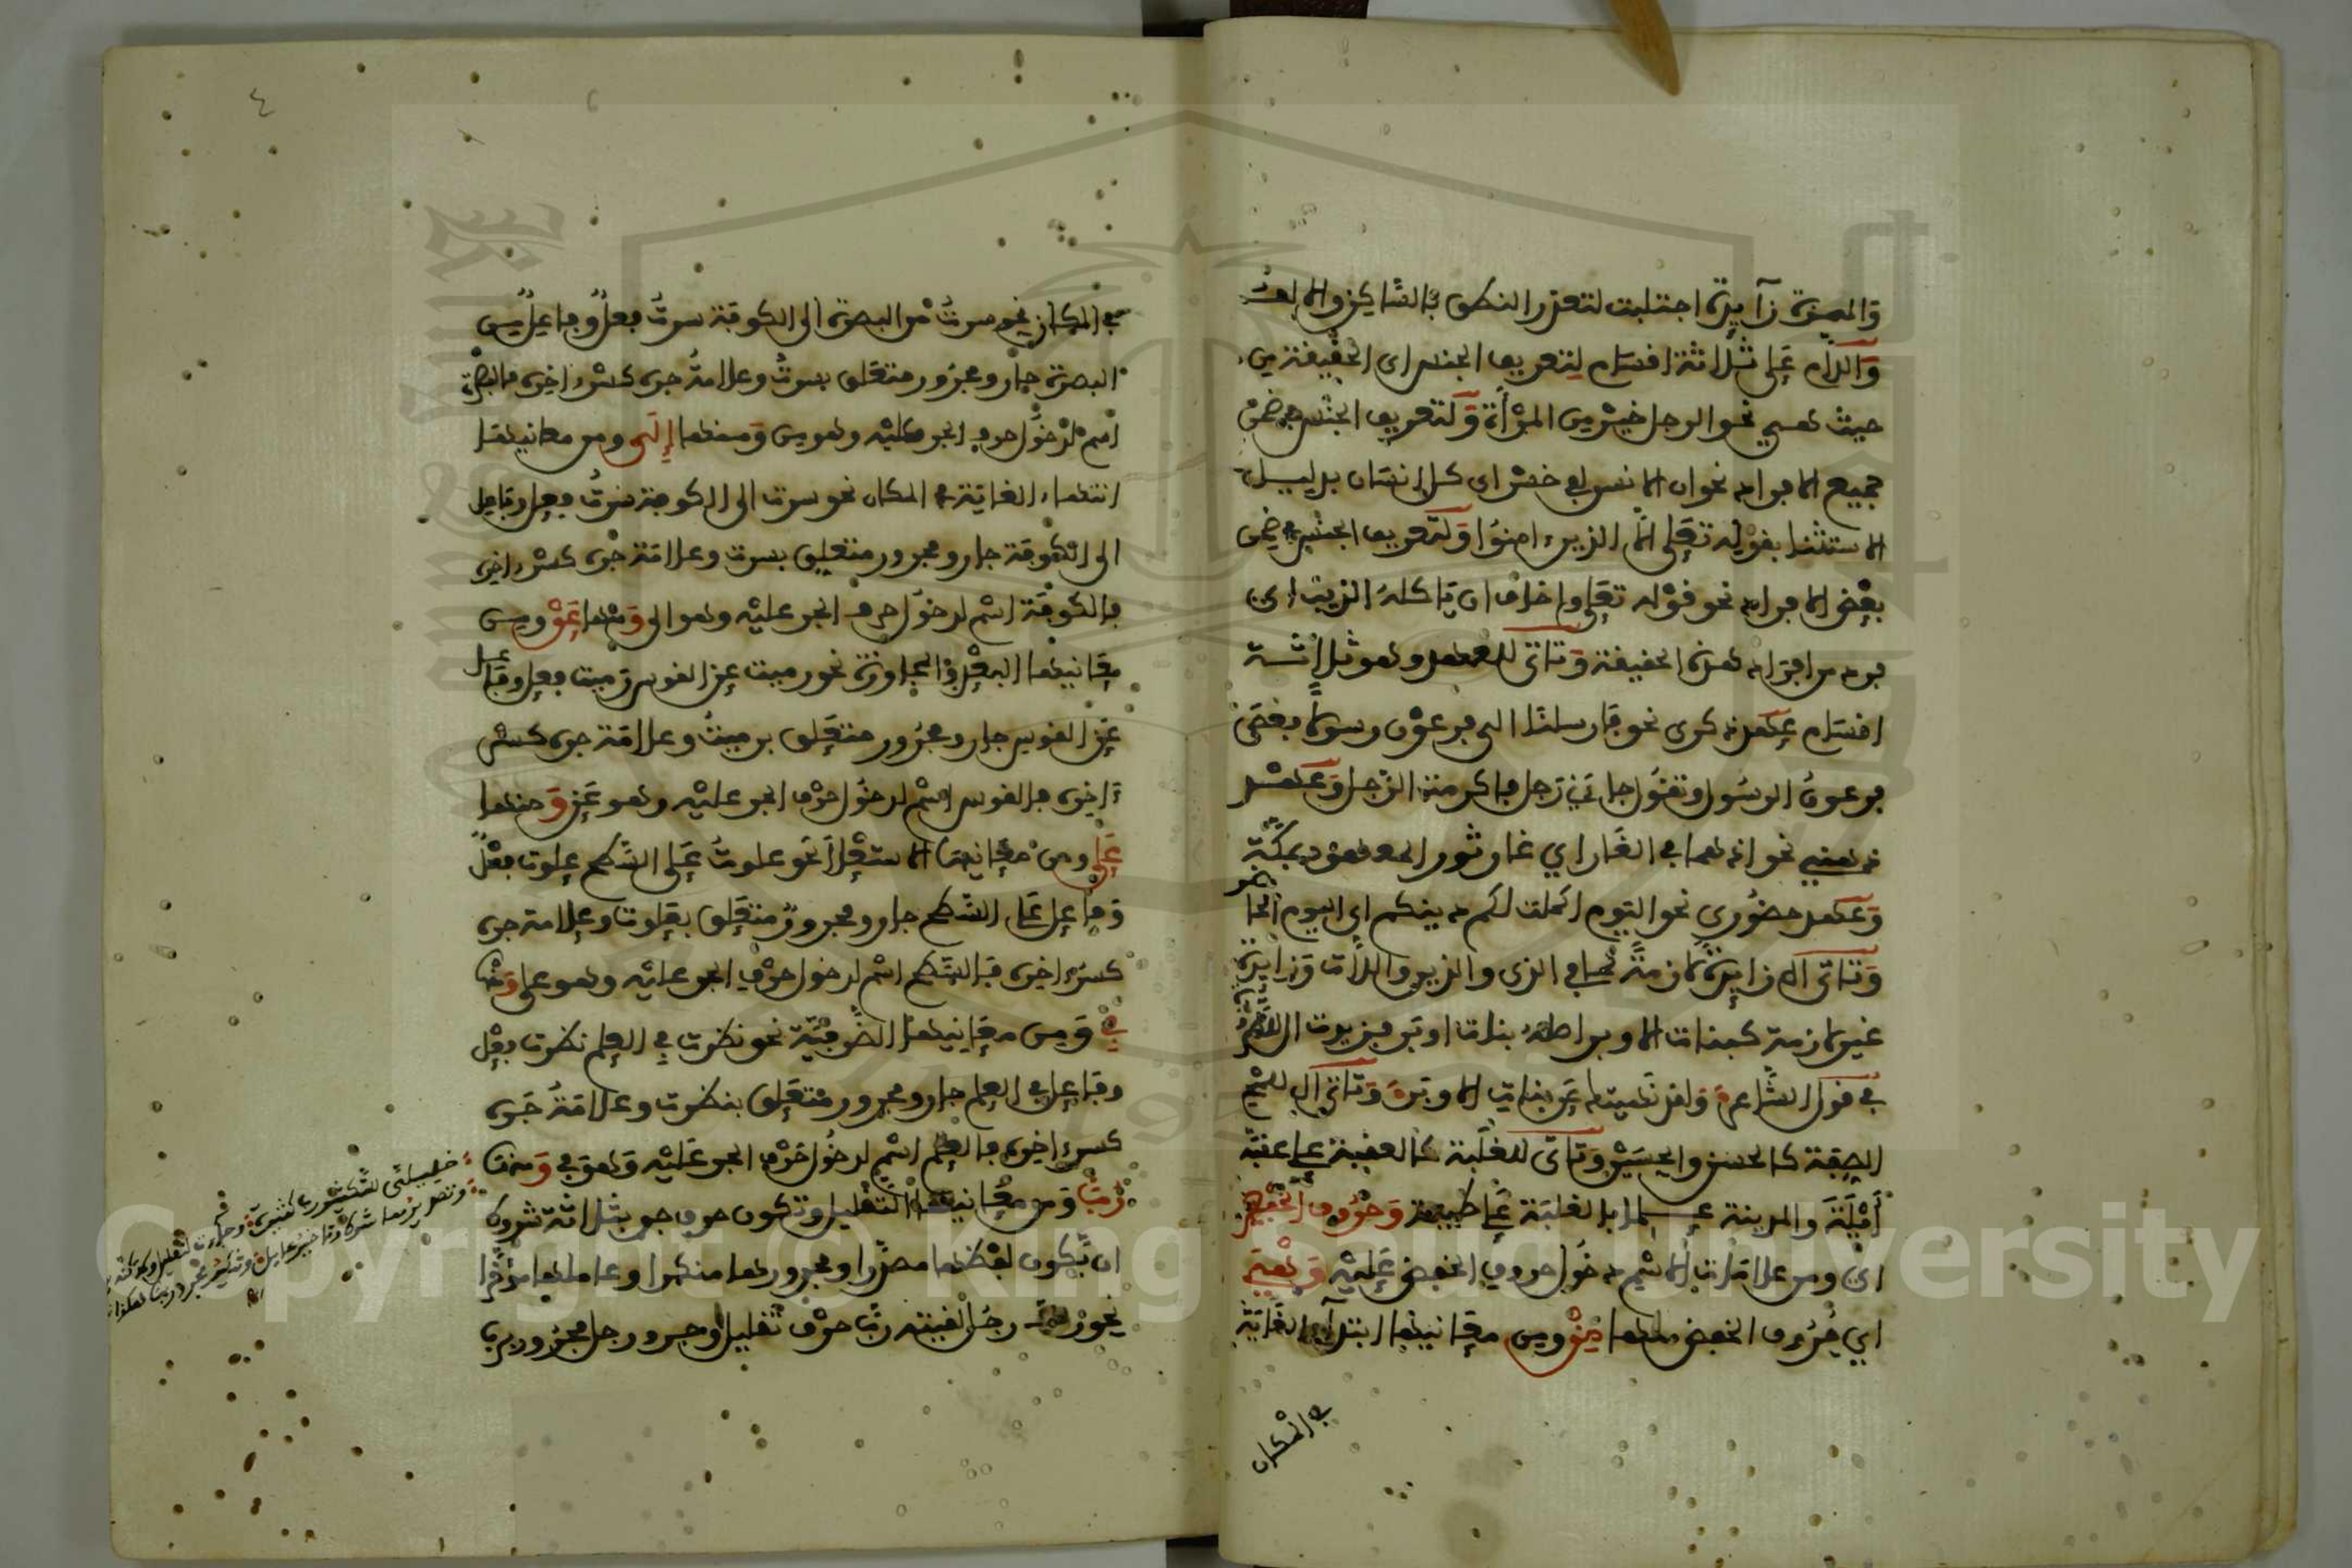 والهمزة زآيدة اجتلبت لتعذر النطق بالساكن والالف
واللام على ثلاثة افسام لتعريف الجنس اى الحقيقة من
حيث هي نحو الرجل خير من المرأة ولتعريف الجنس في ضمن
جميع الافراد نحو ان الانسن لفى خسر اى كل انسان بدليل
الاستثنا بقوله تعلى الا الذين ءامنوا ولتعريف الجنس في ضمن
بعض الافراد نحو قوله تعلى واخاف ان ياكله الذيب اى
فرد من افراد هذه الحقيقة وتاتى للعهد وهو ثلاثة
اقسام عهد ذكرى نحو فارسلنا الى فرعون رسولا فعصى
فرعون الرسول وتقول جاءنى رجل فاكرمت الرجل وعهد
ذهني نحو اذ هما في الغار اي غار ثور المعهود بمكة
وعهد حضوري نحو اليوم اكملت لكم دينكم اى اليوم الحاضر
وتاتى ال زايدة لازمة كما في الذى والذين واللات وزايدة
غير لازمة كبنات الاوبر اصله بنات اوبر فزيدت ال
في قول الشاعر ولقد نهيتك عن بنات الاوبر وتاتى ال للمح
الصفة كالحسن والحسين وتاتى للغلبة كالعقبة على عقبة
أيلة والمدينة علما بالغلبة على طيبة وحروف الخفض
اى ومن علامات الاسم دخول حروف الخفض عليه وهي
اي حروف الخفض منها من ومن معانيها ابتداء الغاية
في المكان
في المكان نحو سرت من البصرة الى الكوفة سرت فعل وفاعل من
البصرة جار ومجرور متعلق بسرت وعلامة جره كسر اخره فالبصرة
اسم لدخول حرف الجر عليه وهو من ومنها الى ومن معانيها
انتهاء الغاية في المكان نحو سرت الى الكوفة سرت فعل وفاعل
الى الكوفة جار ومجرور متعلق بسرت وعلامة جره كسر اخره
فالكوفة اسم لدخول حرف الجر عليه وهو الى ومنها عن ومن
معانيها البعد والمجاوزة نحو رميت عن القوس رميت فعل وفاعل
عن القوس جار ومجرور متعلق برميت وعلامة جره كسر
ءاخره فالقوس اسم لدخول حرف الجر عليه وهو عن ومنها
على ومن معانيها الاستعلا نحو علوت على السطح علوت فعل
وفاعل على السطح جار ومجرور متعلق بعلوت وعلامة جره
كسر اخره فالسطح اسم لدخول حرف الجر عليه وهو على ومنها
في ومن معانيها الظرفية نحو نظرت في العلم نظرت فعل
وفاعل في العلم جار ومجرور متعلق بنظرت وعلامة جره
كسر اخره فالعلم اسم لدخول حرف الجر عليه وهو في ومنها
رب ومن معانيها التقليل وتكون حرف جر بثلاثة شروط
ان تكون لفظها مصدرا ومجرورها منكرا وعاملها مؤخرا
نحو رب رجل لقيته رب حرف تقليل وجر ورجل مجرور برب
٤